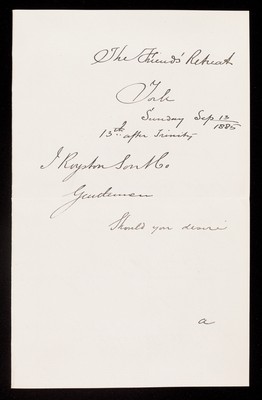 The Friends' Retreat
York
Sunday Sep 13
1885
13th after Trinity
J Royston Son & Co
Gentlemen
Should you desire
a